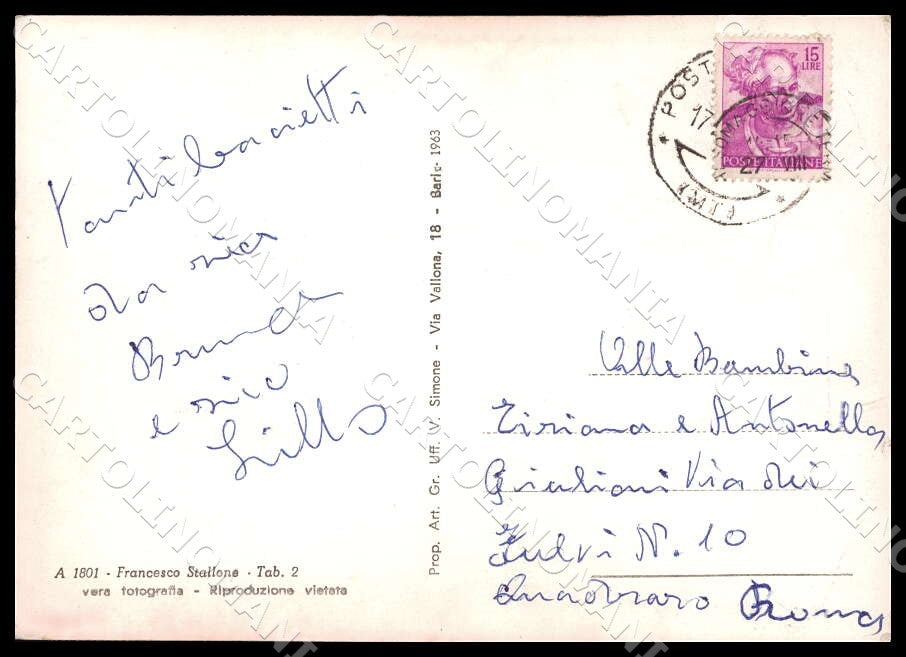 Tanti bacietti
da zia
Bruna
e zio
Lillo
A 1801 - Francesco Stallone - Tab. 2
vera fotografia - Riproduzione vietata
Prop. Art. Gr. Uff. V. Simone - Via Vallona, 18 - Bari - 1963
15
LIRE
POSTE ITALIANE
POST
17
27 VIII
Alle Bambine
Tiziana e Antonella
Giuliani Via dei
N. 10
Quadraro Roma
CARTOLINOMANIA